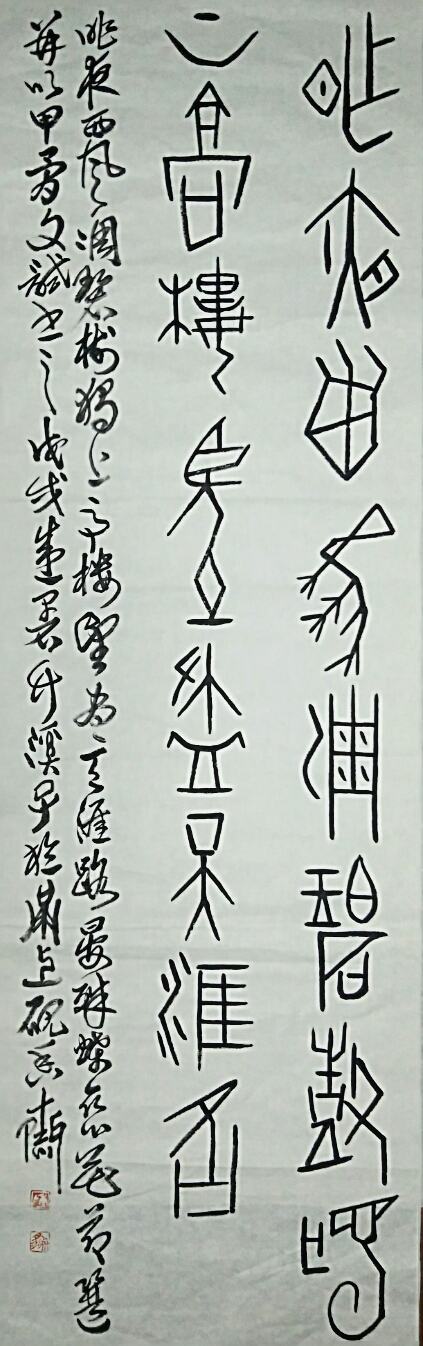 昨夜西風凋碧樹獨
上高樓望盡天涯路
昨夜西風凋碧樹獨上高樓望盡天涯路晏殊蝶戀花節選
并以甲骨文試書之戊戌盛暑竹溪子於鼎上硯香齋